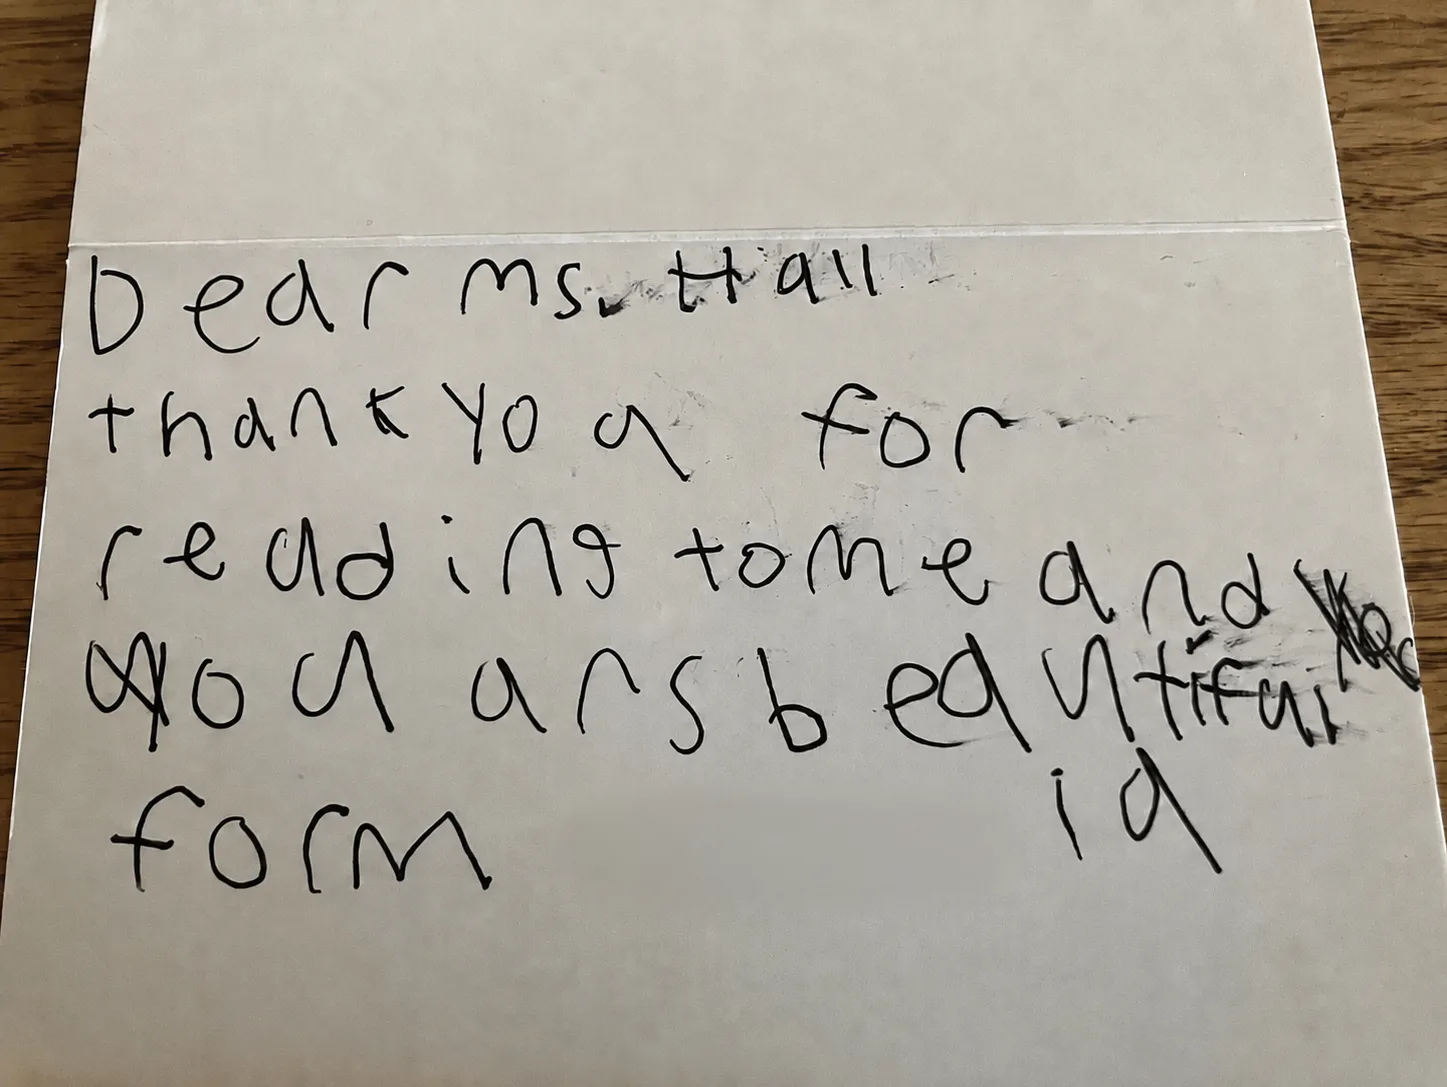 Dear ms. Hall
thank you for
reading to me and
you ars beautiful
form ia